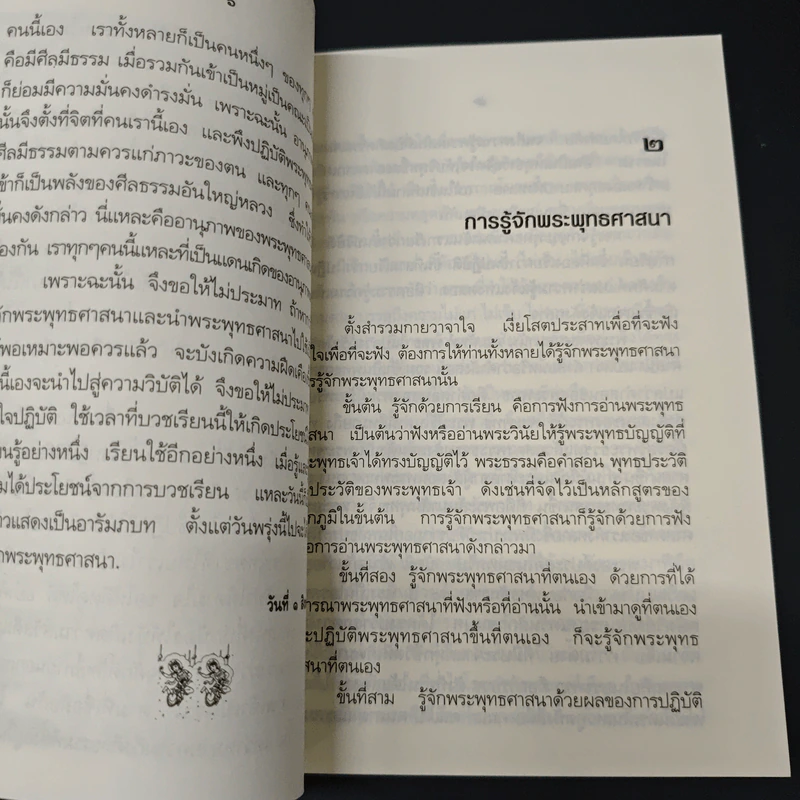 คนนี้เอง เราทั้งหลายก็เป็นคนหนึ่งๆ ของทุกๆ
คือมีศีลมีธรรม เมื่อรวมกันเข้าเป็นหมู่เป็นคณะ
ก็ย่อมมีความมั่นคงดำรงมั่น เพราะฉะนั้น
นั้นจึงตั้งที่จิตที่คนเรานี้เอง และพึงปฏิบัติพระพุทธ
ศีลมีธรรมตามควรแก่ภาวะของตน และทุกๆ
ข้าก็เป็นพลังของศีลธรรมอันใหญ่หลวง ซึ่งทำให้
นคงดังกล่าว นี่แหละคืออานุภาพของพระพุทธศา
องกัน เราทุกๆคนนี้แหละที่เป็นแดนเกิดของอานุภา
เพราะฉะนั้น จึงขอให้ไม่ประมาท ถ้าหาก
จักพระพุทธศาสนาและนำพระพุทธศาสนาไปใช้
พอเหมาะพอควรแล้ว จะบังเกิดความฝืดเคือง
นี้เองจะนำไปสู่ความวิบัติได้ จึงขอให้ไม่ประมาท
ใจปฏิบัติ ใช้เวลาที่บวชเรียนนี้ให้เกิดประโยชน์
นรู้อย่างหนึ่ง เรียนใช้อีกอย่างหนึ่ง เมื่อรู้และ
มได้ประโยชน์จากการบวชเรียน และวันนี้
าวแสดงเป็นอารัมภบท ตั้งแต่วันพรุ่งนี้ไปจะ
กพระพุทธศาสนา.
วันที่ ๑
๒
การรู้จักพระพุทธศาสนา
ตั้งสำรวมกายวาจาใจ เงี่ยโสตประสาทเพื่อที่จะฟัง
ใจเพื่อที่จะฟัง ต้องการให้ท่านทั้งหลายได้รู้จักพระพุทธศาสนา
ารรู้จักพระพุทธศาสนานั้น
ขั้นต้น รู้จักด้วยการเรียน คือการฟังการอ่านพระพุทธ
สนา เป็นต้นว่าฟังหรืออ่านพระวินัยให้รู้พระพุทธบัญญัติที่
ะพุทธเจ้าได้ทรงบัญญัติไว้ พระธรรมคือคำสอน พุทธประวัติ
ประวัติของพระพุทธเจ้า ดังเช่นที่จัดไว้เป็นหลักสูตรของ
กภูมิในขั้นต้น การรู้จักพระพุทธศาสนาก็รู้จักด้วยการฟัง
ือการอ่านพระพุทธศาสนาดังกล่าวมา
ขั้นที่สอง รู้จักพระพุทธศาสนาที่ตนเอง ด้วยการที่ได้
ารณาพระพุทธศาสนาที่ฟังหรือที่อ่านนั้น นำเข้ามาดูที่ตนเอง
ะปฏิบัติพระพุทธศาสนาขึ้นที่ตนเอง ก็จะรู้จักพระพุทธ
สนาที่ตนเอง
ขั้นที่สาม รู้จักพระพุทธศาสนาด้วยผลของการปฏิบัติ